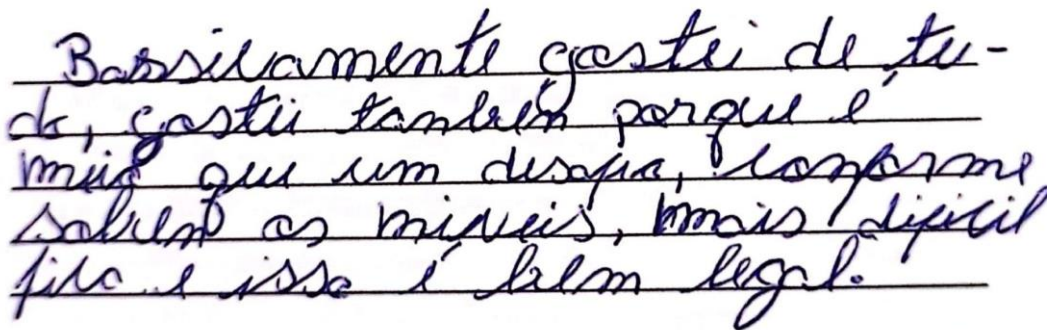 Bassicamente gostei de tu-
do, gostei também porque é
meio que um desafio, conforme
sobem os níveis, mais dificil
fica e isso é bem legal.